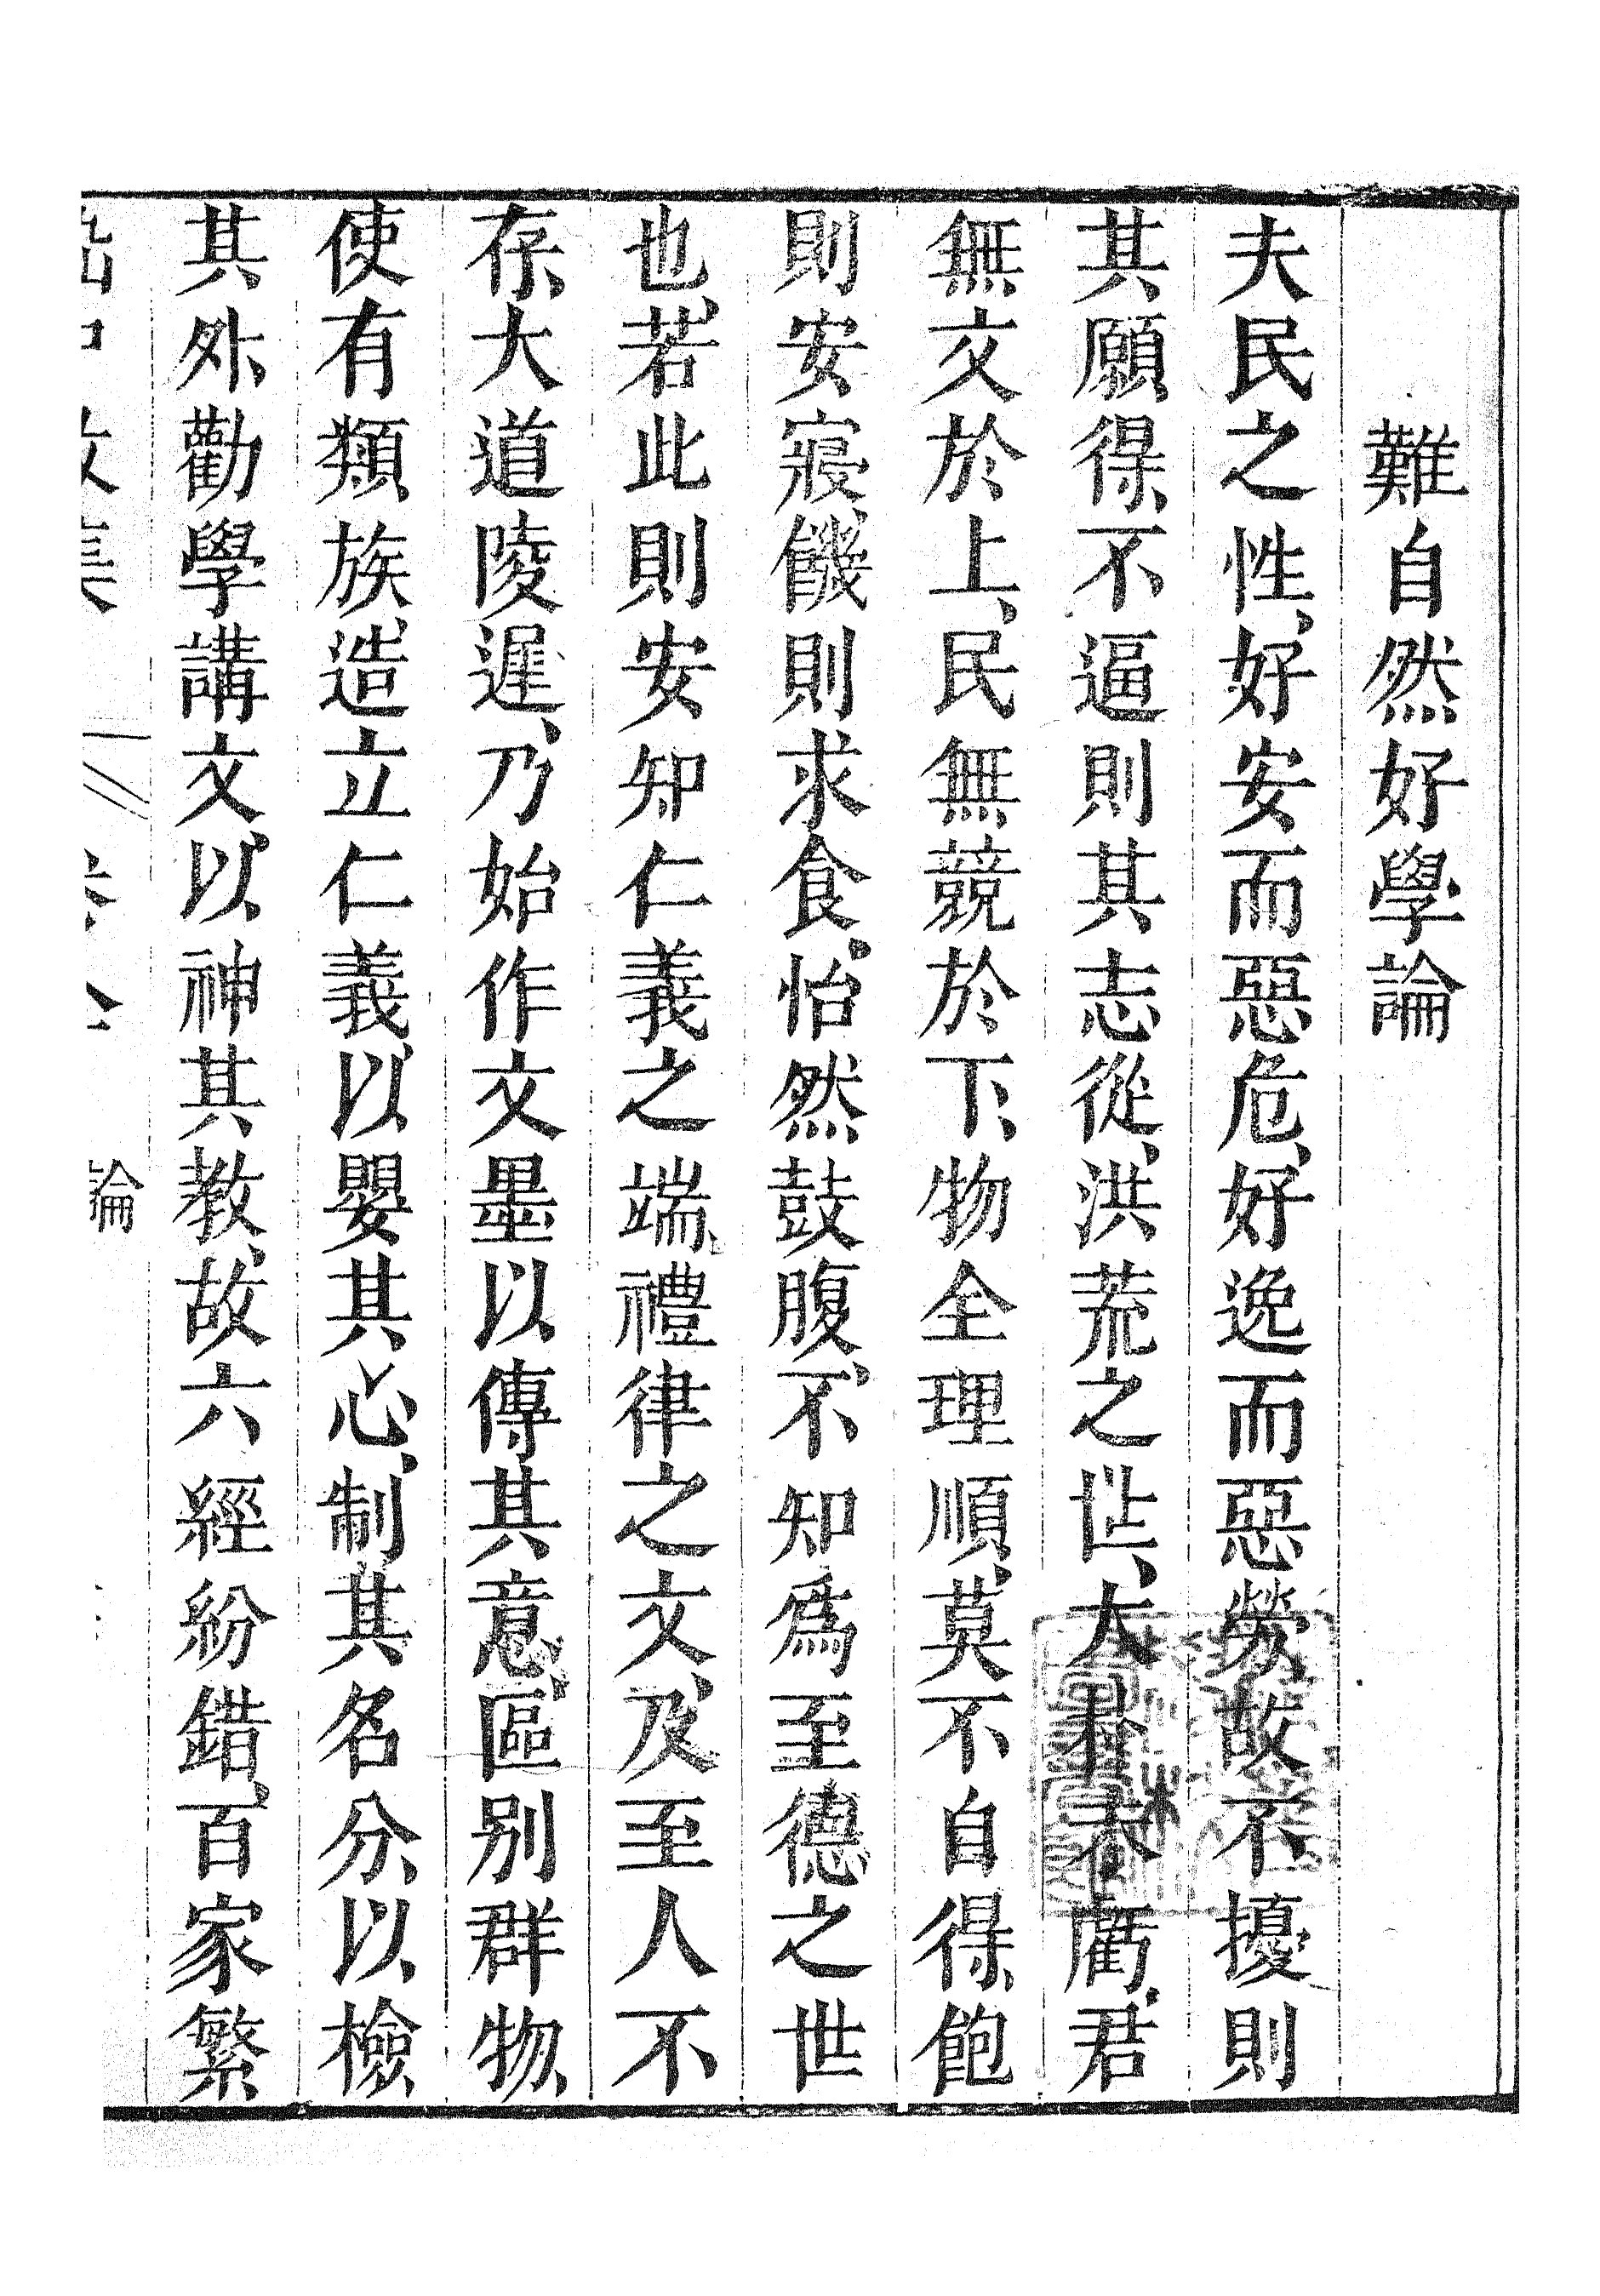 難自然好學論
夫民之性、好安而惡危、好逸而惡勞、故不擾則
其願得、不逼則其志從、洪荒之世、大朴未虧、君
無文於上、民無競於下、物全理順、莫不自得、飽
則安寢、饑則求食、怡然鼓腹、不知爲至德之世
也、若此則安知仁義之端、禮律之文、及至人不
存、大道陵遲、乃始作文墨以傳其意、區别群物、
使有類族、造立仁義、以嬰其心、制其名分、以檢
其外、勸學講文、以神其教、故六經紛錯、百家繁
論